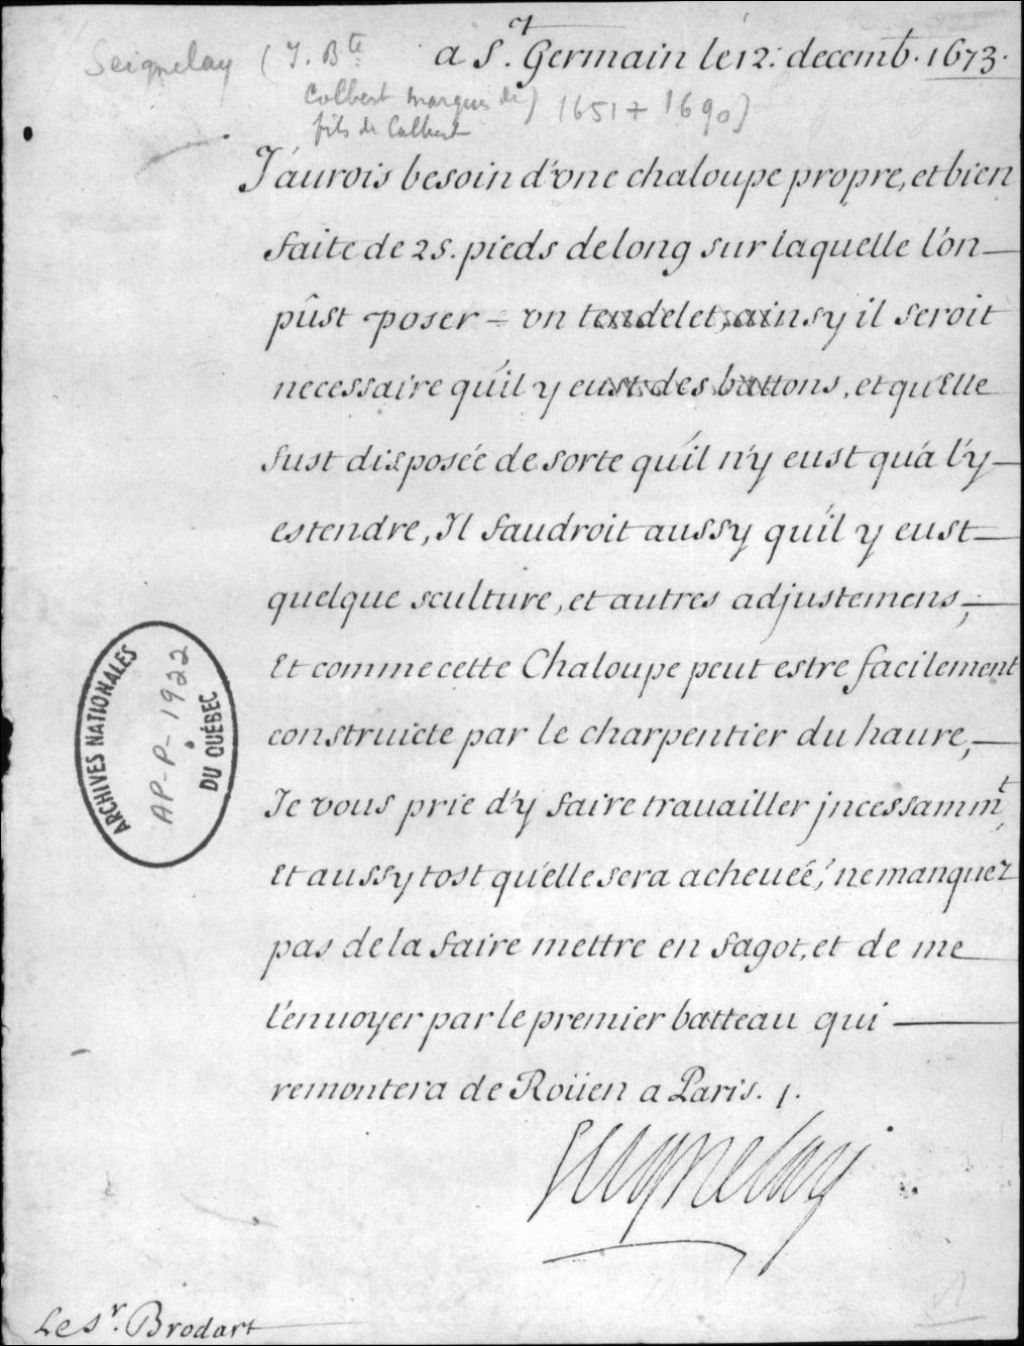 Seignelay ( J. Bte
Colbert marquis de )
fils de Colbert
1651 + 1690)
a St. Germain le 12. decemb. 1673.
J'aurois besoin d'vne chaloupe propre, et bien
faite de 25. pieds de long sur laquelle l'on
pûst poser - vn tendelet, ainsy il seroit
necessaire qu'il y eust des battons, et qu'Elle
fust disposée de sorte qu'il n'y eust qu'à l'y
estendre, Il faudroit aussy qu'il y eust
quelque sculture, et autres adjustemens,
Et comme cette Chaloupe peut estre facilement
construicte par le charpentier du haure,
Je vous prie d'y faire trauailler jncessammt,
Et aussy tost qu'elle sera acheuée, ne manquez
pas de la faire mettre en fagot, et de me
l'enuoyer par le premier batteau qui
remontera de Roüen a Paris. /.
Seignelay
Le Sr. Brodart
ARCHIVES NATIONALES
AP-P-1922
DU QUÉBEC